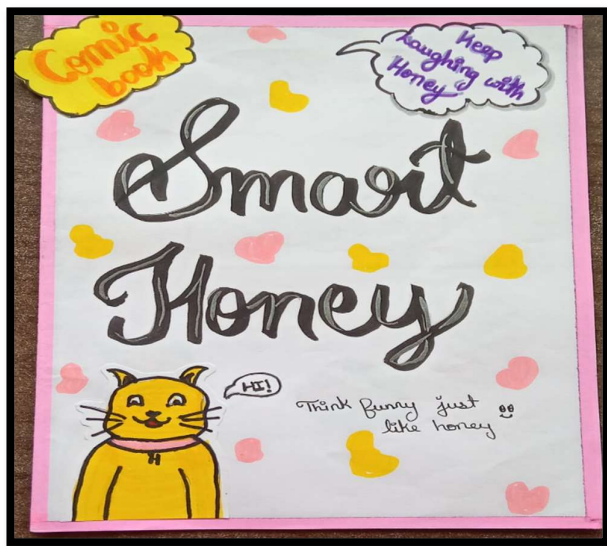 Comic
book
Keep
Laughing with
Honey
Smart
Honey
HI!
Think funny just
like honey
H